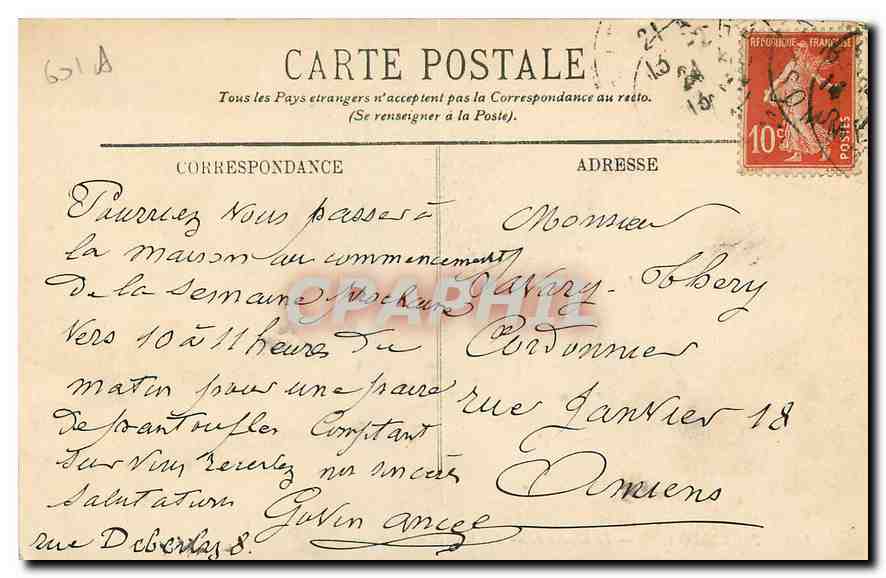 601 A
CARTE POSTALE
Tous les Pays etrangers n'acceptent pas la Correspondance au recto.
(Se renseigner à la Poste).
CORRESPONDANCE
Pourriez Vous passer à
la maison au commencement
de la semaine prochaine
vers 10 à 11 heures du
matin pour une paire
de pantoufles Comptant
sur Vous recevez nos sincères
salutations
rue Deberly 8.
ADRESSE
Monsieur
Cordonnier
rue Janvier 18
Amiens
REPUBLIQUE FRANÇAISE
10c
POSTES
CPAPHIL